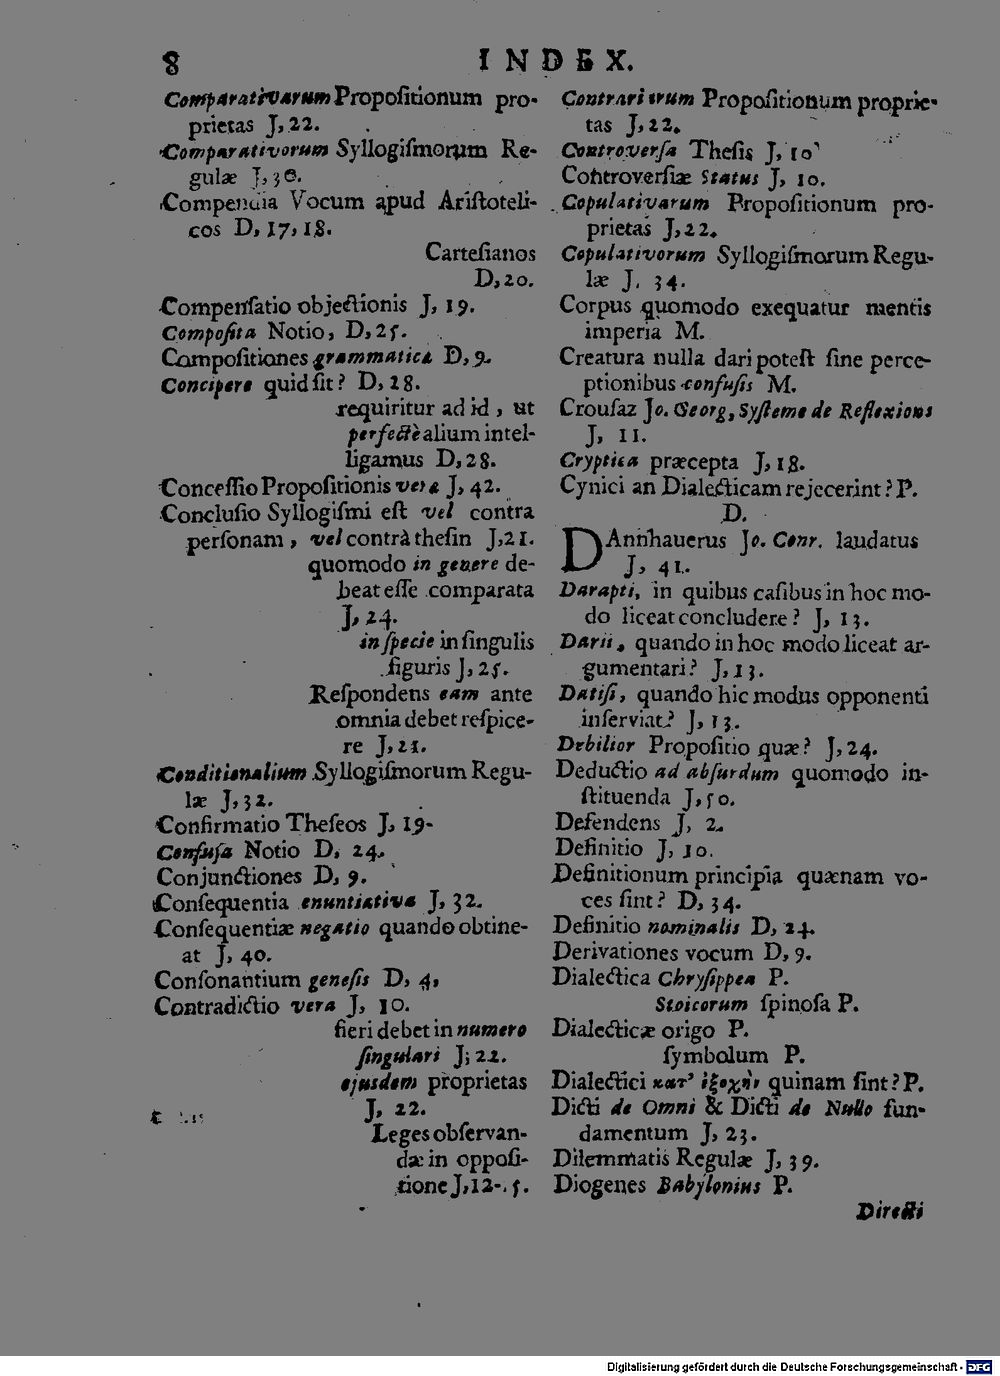 8 INDEX.
Comparativarum Propoſitionum pro-
prietas J, 22.
Comparativorum Syllogiſmorum Re-
gulæ J, 30.
Compendia Vocum apud Ariſtoteli-
cos D, 17, 18.
Carteſianos
D, 20.
Compenſatio objectionis J, 19.
Compoſita Notio, D, 25.
Compoſitiones grammaticæ D, 9.
Concipere quid ſit? D, 28.
requiritur ad id, ut
perfectè alium intel-
ligamus D, 28.
Conceſſio Propoſitionis vera J, 42.
Concluſio Syllogiſmi eſt vel contra
perſonam, vel contrà theſin J, 21.
quomodo in genere de-
beat eſſe comparata
J, 24.
in ſpecie in ſingulis
figuris J, 25.
Reſpondens eam ante
omnia debet reſpice-
re J, 21.
Conditionalium Syllogiſmorum Regu-
læ J, 32.
Confirmatio Theſeos J, 19.
Confuſa Notio D, 24.
Conjunctiones D, 9.
Conſequentia enuntiativa J, 32.
Conſequentiæ negatio quando obtine-
at J, 40.
Conſonantium geneſis D, 4,
Contradictio vera J, 10.
fieri debet in numero
ſingulari J, 22.
ejusdem proprietas
J, 22.
Leges obſervan-
dæ in oppoſi-
tione J, 12-
Contrariarum Propoſitionum proprie-
tas J, 22.
Controverſa Theſis J, 10
Controverſiæ Status J, 10.
Copulativarum Propoſitionum pro-
prietas J, 22.
Copulativorum Syllogiſmorum Regu-
læ J, 34.
Corpus quomodo exequatur mentis
imperia M.
Creatura nulla dari poteſt ſine perce-
ptionibus confuſis M.
Crouſaz Jo. Georg, Syſteme de Reflexions
J, 11.
Cryptica præcepta J, 18.
Cynici an Dialecticam rejecerint? P.
D.
DAnnhauerus Jo. Conr. laudatus
J, 41.
Darapti, in quibus caſibus in hoc mo-
do liceat concludere? J, 13.
Darii, quando in hoc modo liceat ar-
gumentari? J, 13.
Datiſi, quando hic modus opponenti
inſerviat? J, 13.
Debilior Propoſitio quæ? J, 24.
Deductio ad abſurdum quomodo in-
ſtituenda J, 50.
Defendens J, 2.
Definitio J, 10.
Definitionum principia quænam vo-
ces ſint? D, 34.
Definitio nominalis D, 24.
Derivationes vocum D, 9.
Dialectica Chryſippea P.
Stoicorum ſpinoſa P.
Dialecticæ origo P.
ſymbolum P.
Dialectici κατ’ ἐξοχὴν quinam ſint? P.
Dicti de Omni & Dicti de Nullo fun-
damentum J, 23.
Dilemmatis Regulæ J, 39.
Diogenes Babylonius P.
Directi
Digitalisierung gefördert durch die Deutsche Forschungsgemeinschaft - DFG